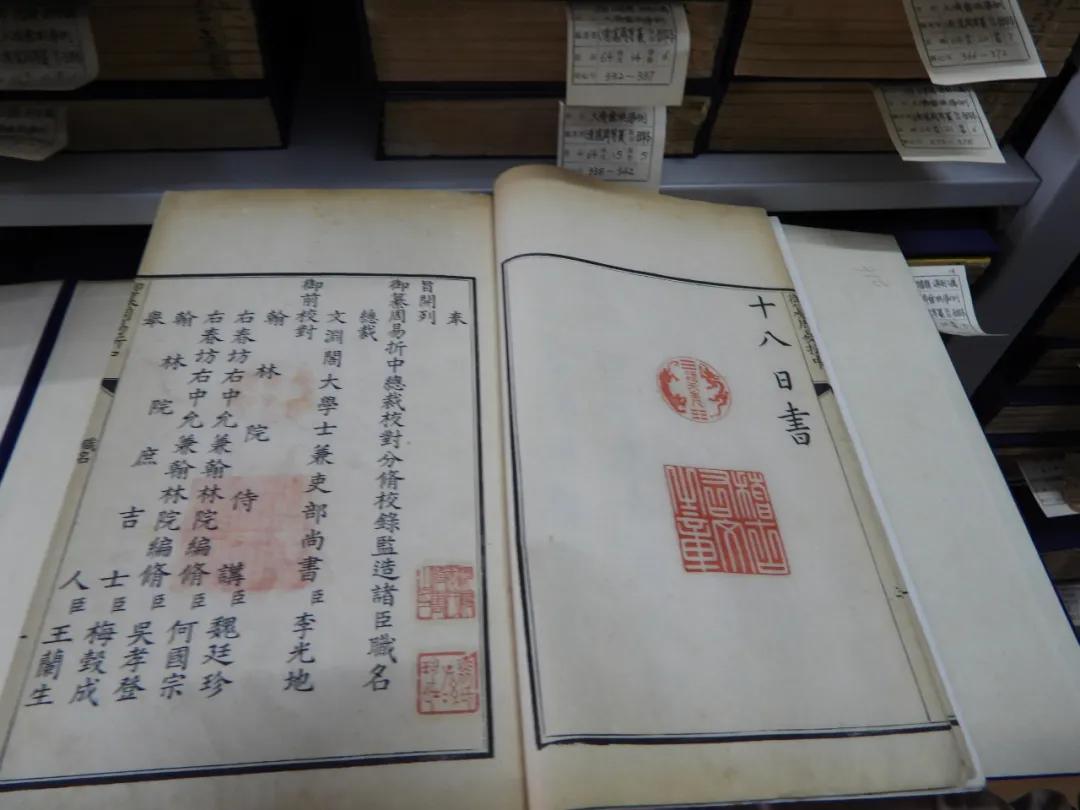 十八日書
稽古右文之章
奉
旨開列
御纂周易折中總裁校對分脩校錄監造諸臣職名
總裁
文淵閣大學士兼吏部尚書臣李光地
御前校對
翰林院侍講臣魏廷珍
右春坊右中允兼翰林院編脩臣何國宗
右春坊右中允兼翰林院編脩臣吳孝登
翰林院庶吉士臣梅瑴成
舉人臣王蘭生
職名
332~337
338~342
366~372